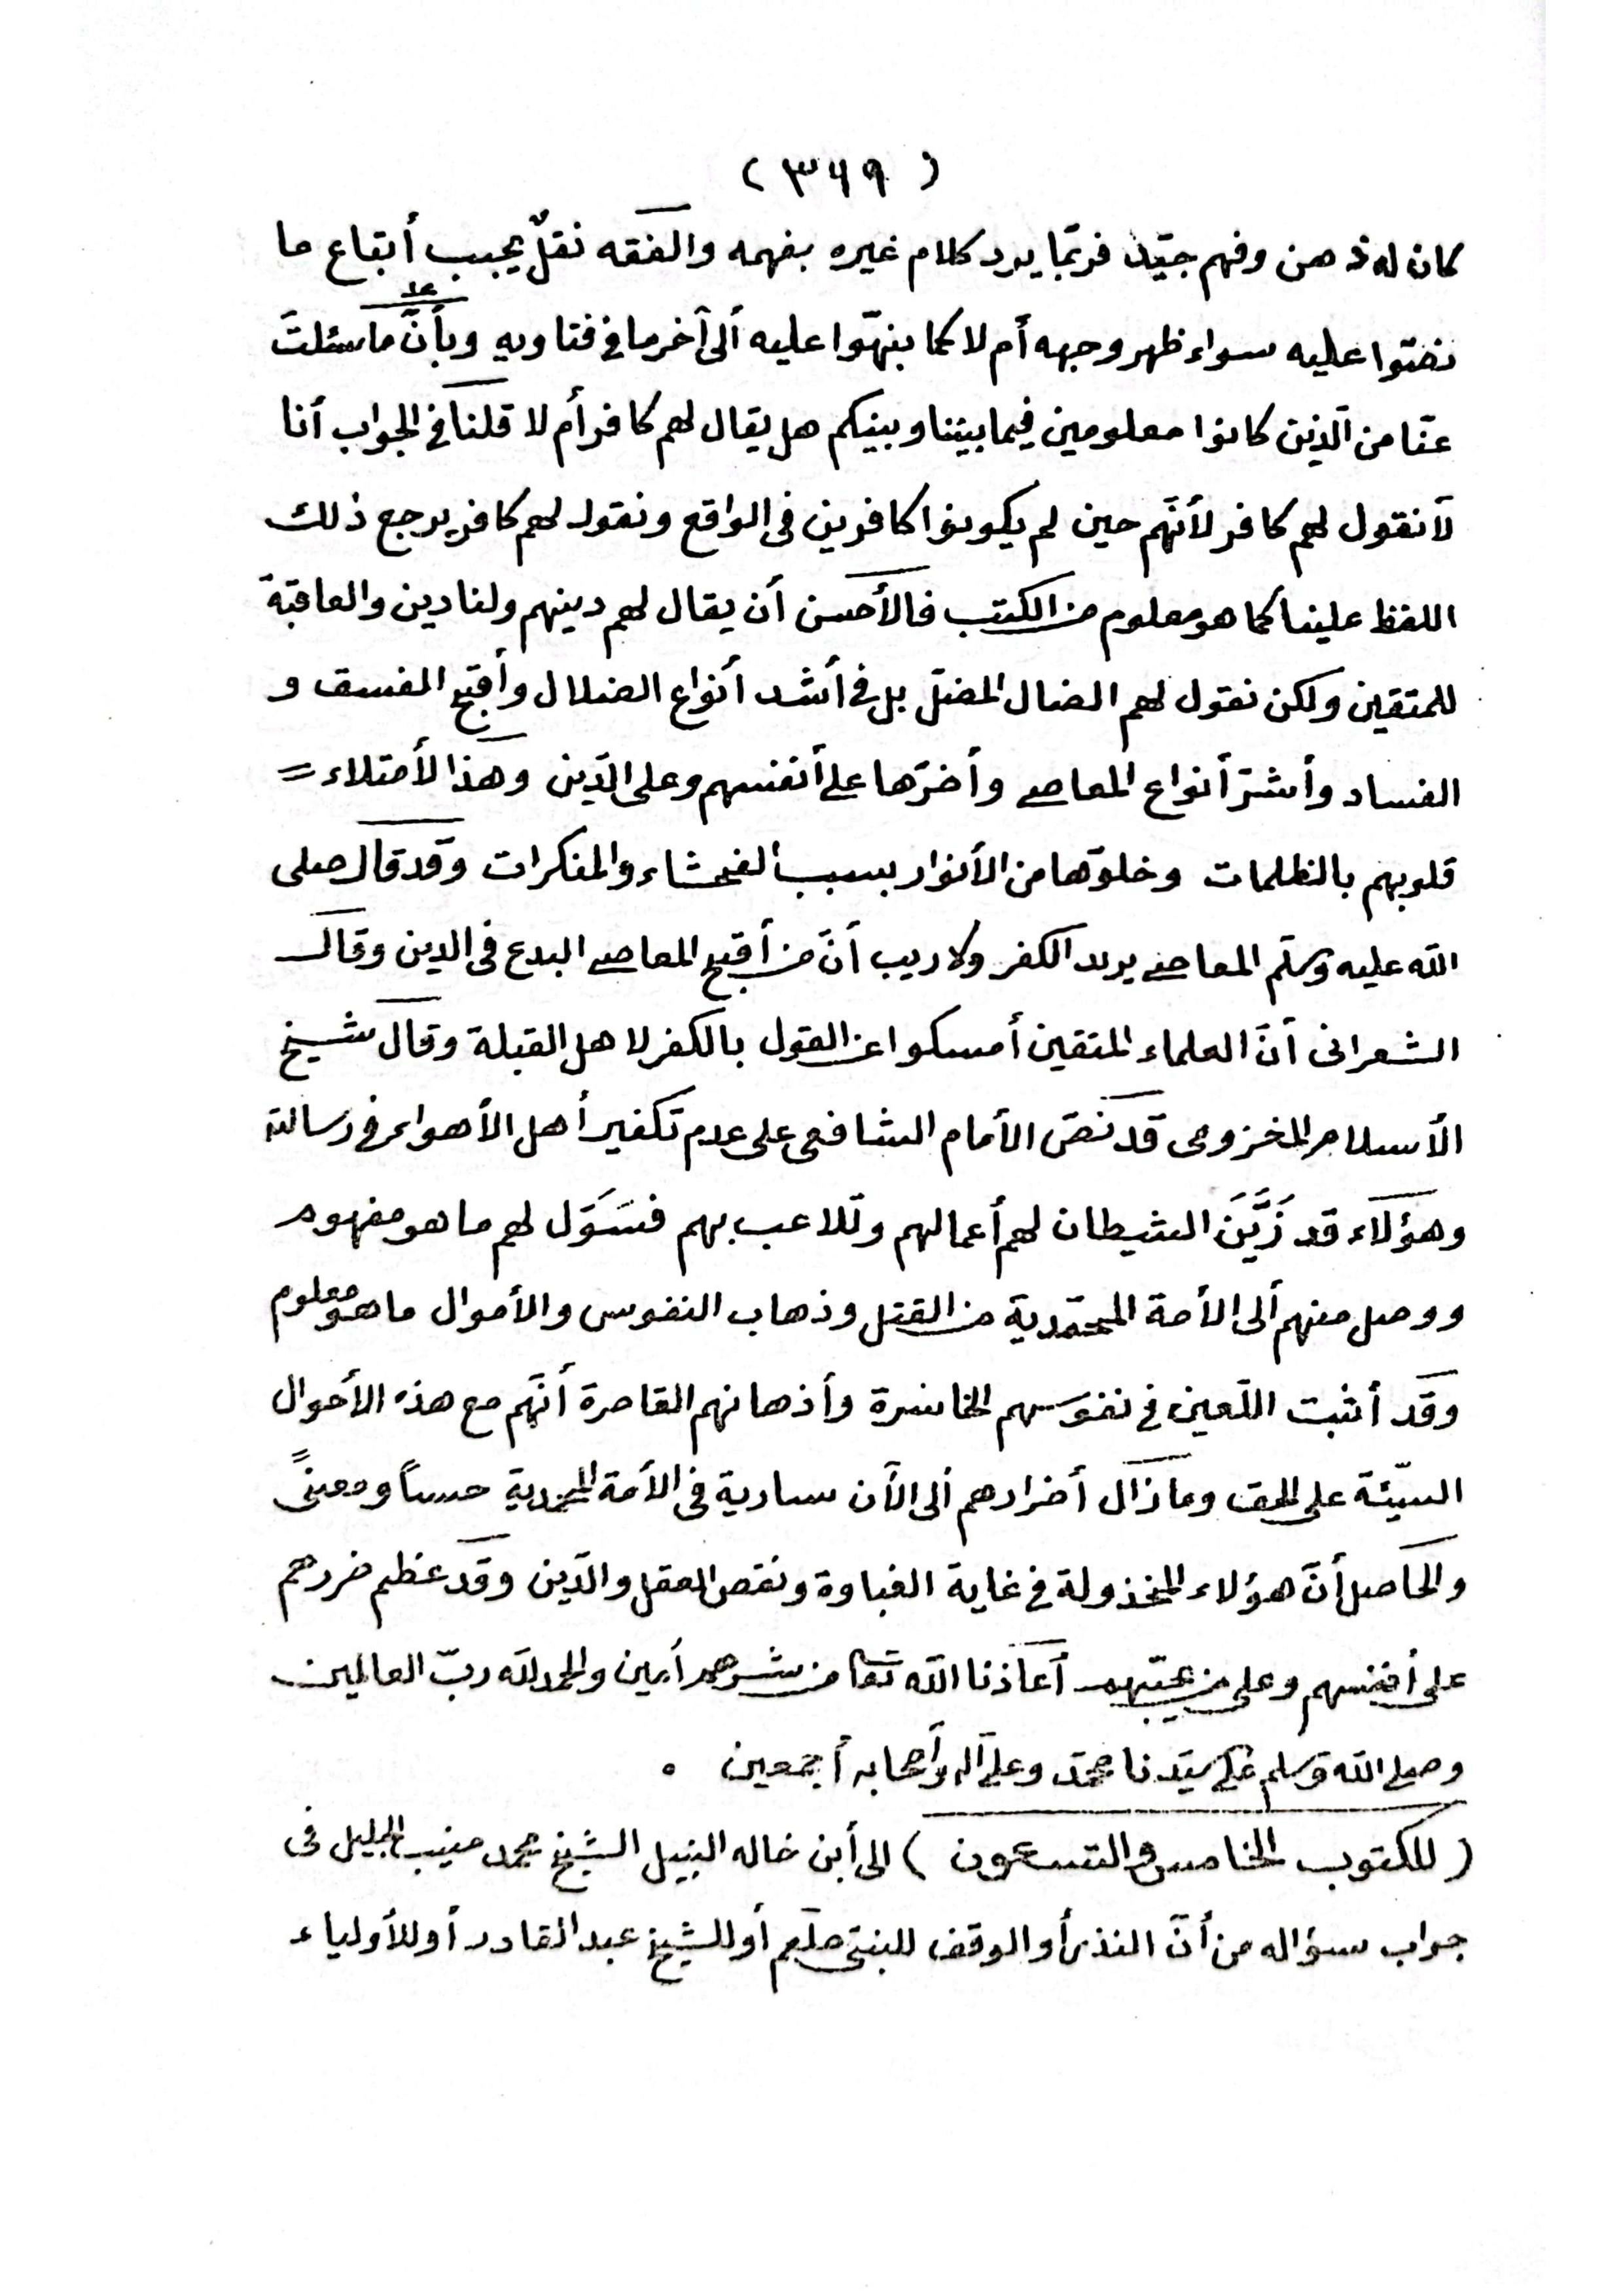 ( ٣٦٩ )
كان له ذهن وفهم جيّد فربّما يرد كلام غيره بفهمه والفقه نقلٌ يجب أتباع ما
نصّوا عليه سواء ظهر وجهه أم لا كما بنهّوا عليه ألى آخر ما فى فتاويه وبأنّ ما سئلتَ
عنّا من الّذين كانوا معلومين فيما بيننا وبينكم هل يقال لهم كافر أم لا قلنا فى الجواب أنا
لا نقول لهم كافر لأنّهم حين لم يكونوا كافرين فى الواقع ونقول لهم كافر يرجع ذلك
اللفظ علينا كما هو معلوم من الكتب فالأحسن أن يقال لهم دينهم ولنا دين والعاقبة
للمتقين ولكن نقول لهم الضال المضلّ بل فى أشد أنواع الضلال وأقبح الفسق و
الفساد وأشرّ أنواع المعاصى وأضرّها على أنفسهم وعلى الدّين وهذا لأمتلاء =
قلوبهم بالظلمات وخلوّها من الأنوار بسبب الفحشاء والمنكرات وقد قال صلى
الله عليه وسلّم المعاصى بريد الكفر ولا ريب أنّ من أقبح المعاصى البدع فى الدين وقال
الشعرانى أنّ العلماء المتقين أمسكوا عن القول بالكفر لاهل القبلة وقال شيخ
الأسلام المخزومى قد نصّ الأمام الشافعى على عدم تكفير أهل الأهواء فى رسالته
وهؤلاء قد زَيَّنَ الشيطان لهم أعمالهم وتلاعب بهم فسَوَّل لهم ما هو مفهوم
ووصل منهم ألى الأمة المحمّدية من القتل وذهاب النفوس والأموال ما هو معلوم
وقد أثبت اللّعين فى نفوسهم الخاسرة وأذهانهم القاصرة أنّهم مع هذه الأحوال
السيّئة على الحق وما زال أضرارهم ألى الآن سارية فى الأمة المحمدية حساً ومعنىً
والحاصل أنّ هؤلاء المخذولة فى غاية الغباوة ونقص العقل والدّين وقد عظم ضررهم
على أنفسهم وعلى من يحبّهم أعاذنا الله تعا من شرهم أمين والحمد لله ربّ العالمين
وصلى الله وسلم على سيّدنا محمّد وعلى آله وأصحابه أجمعين ٠
( المكتوب الخامس والتسعون ) الى أبن خاله النبيل الشيخ محمد منيب الجليل فى
جواب سؤاله من أنّ النذر أو الوقف للبنىّ صلّعم أو للشيخ عبد القادر أو للأولياء